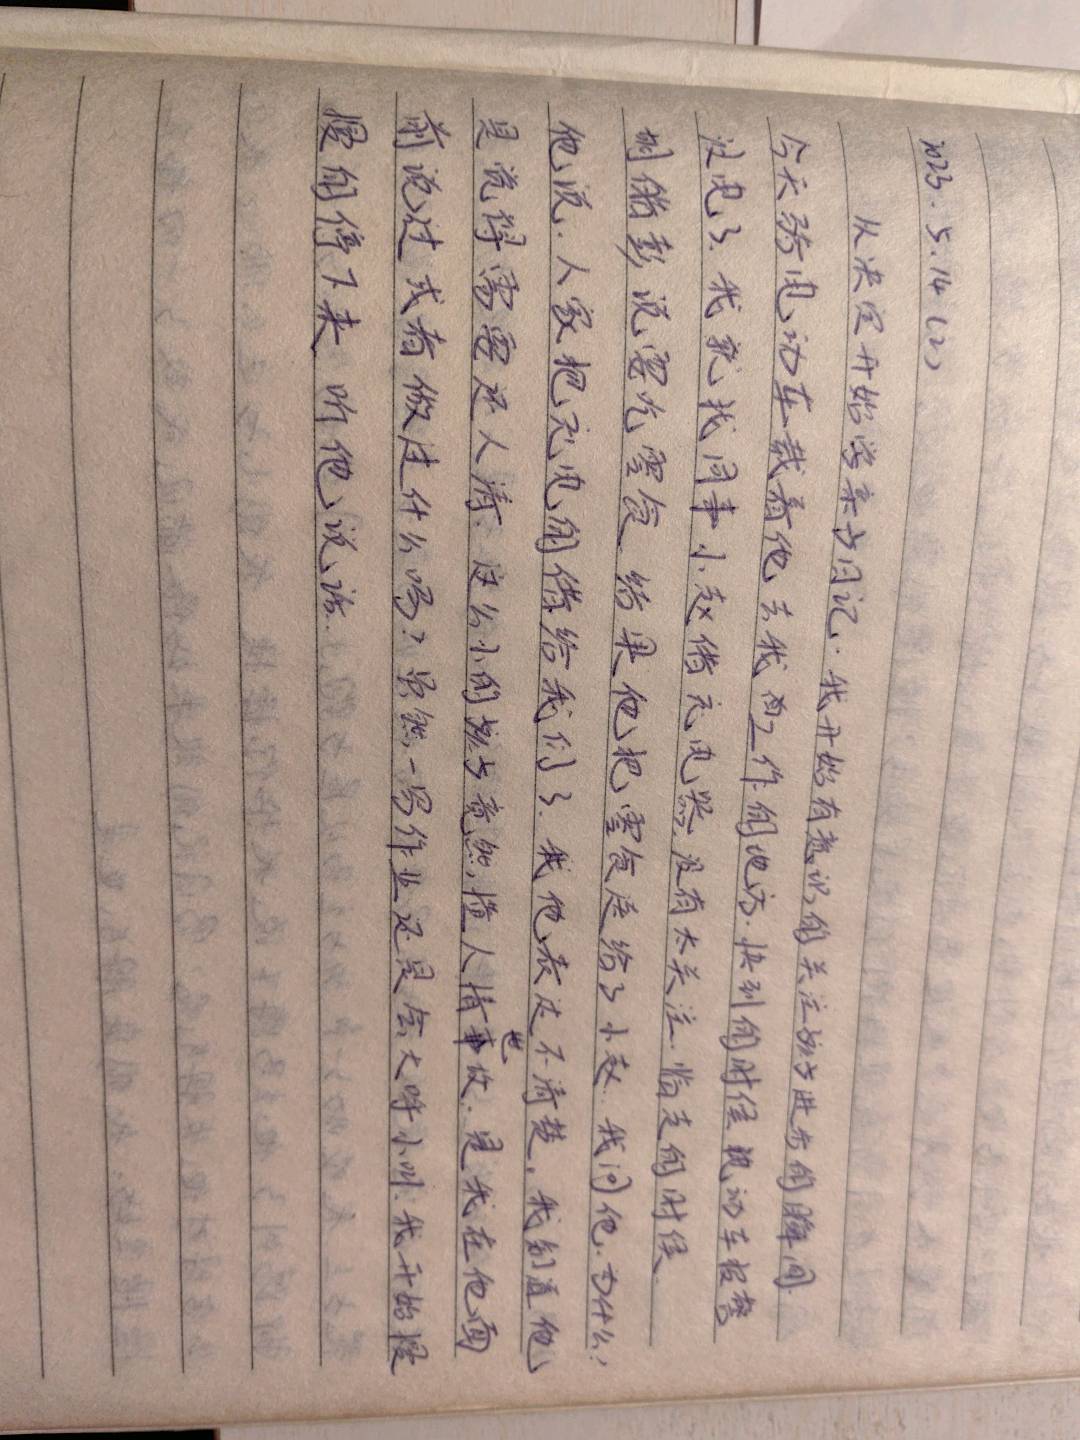 2023.5.14(2)
从决定开始学亲书日记.我开始有意识的关注进步的瞬间
今天骑电动车载着他去我工作的地访.快到的时候电动车报警
没电了.我就找同事小赵借充电器.没有太关注.临走的时候
彭说要吃零食.结果他把零食送给了小赵.我问他.为什么?
他说.人家把充电的借给我们了.我他表达不清楚.我知道他
是说得需要还人情.这么小的竟然懂人情世故.是我在他面
前说过或者做过什么吗?虽然一写作业还是会大呼小叫.我开始慢
慢的停下来 听他说话.